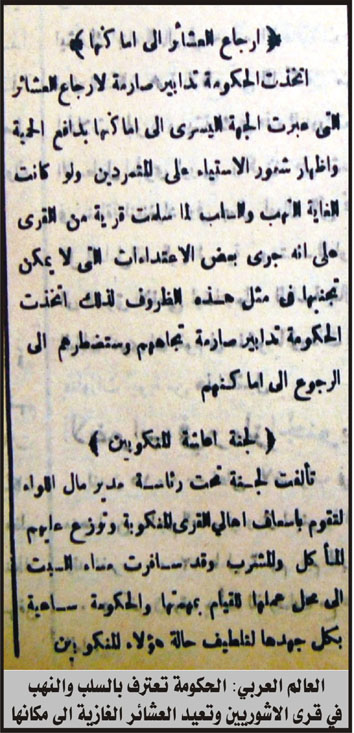 ﴿ ارجاع العشائر الى اماكنها ﴾
اتخذت الحكومة تدابير صارمة لارجاع العشائر
التى عبرت الجهة اليسرى الى اماكنها بدافع الحمية
واظهار شعور الاستياء على المتمردين ولو كانت
الغاية النهب والسلب لما سلمت قرية من القرى
على انه جرى بعض الاعتداءات التى لا يمكن
تجنبها فى مثل هذه الظروف لذلك اتخذت
الحكومة تدابير صارمة تجاههم وستضطرهم الى
الرجوع الى اماكنهم
﴿ لجنة اعاشة المنكوبين ﴾
تألفت لجنة تحت رئاسة مدير مال اللواء
لتقوم باسعاف اهالي القرى المنكوبة وتوزع عليهم
المأكل والمشرب وقد سافرت مساء السبت
الى محل عملها للقيام بمهمتها والحكومة ساعية
بكل جهدها لتلطيف حالة هؤلاء المنكوبين
العالم العربي: الحكومة تعترف بالسلب والنهب
في قرى الاشوريين وتعيد العشائر الغازية الى مكانها